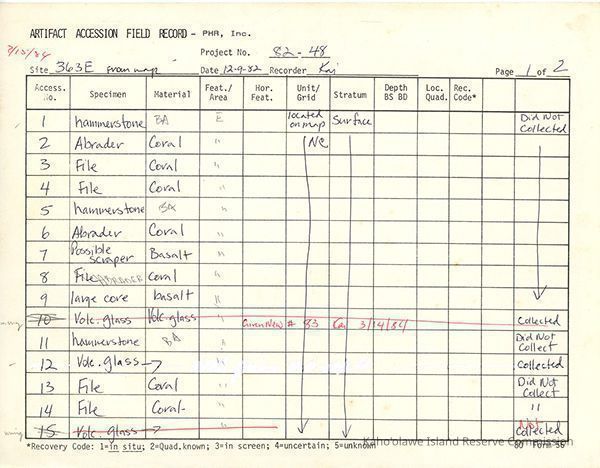 ARTIFACT ACCESSION FIELD RECORD - PHR, Inc.
3/15/84
Project No. 82-48
Site 363E from map Date 12-9-82 Recorder Kai Page 1 of 2
Access. No. Specimen Material Feat./ Area Hor. Feat. Unit/ Grid Stratum Depth BS BD Loc. Quad. Rec. Code*
1 hammerstone BA E located on map Surface Did Not Collected
2 Abrader Coral " NC
3 File Coral "
4 File Coral "
5 hammerstone BA "
6 Abrader Coral "
7 Possible scraper Basalt "
8 File Coral "
9 large core basalt "
10 Volc. glass Volc glass Given New # 83 3/14/84 Collected
11 hammerstone BA " Did Not Collect
12 Volc. glass → " Collected
13 File Coral " Did Not Collect
14 File Coral " "
15 Volc. glass → " Not Collected
*Recovery Code: 1=in situ; 2=Quad.known; 3=in screen; 4=uncertain; 5=unknown
Kaho'olawe Island Reserve Commission